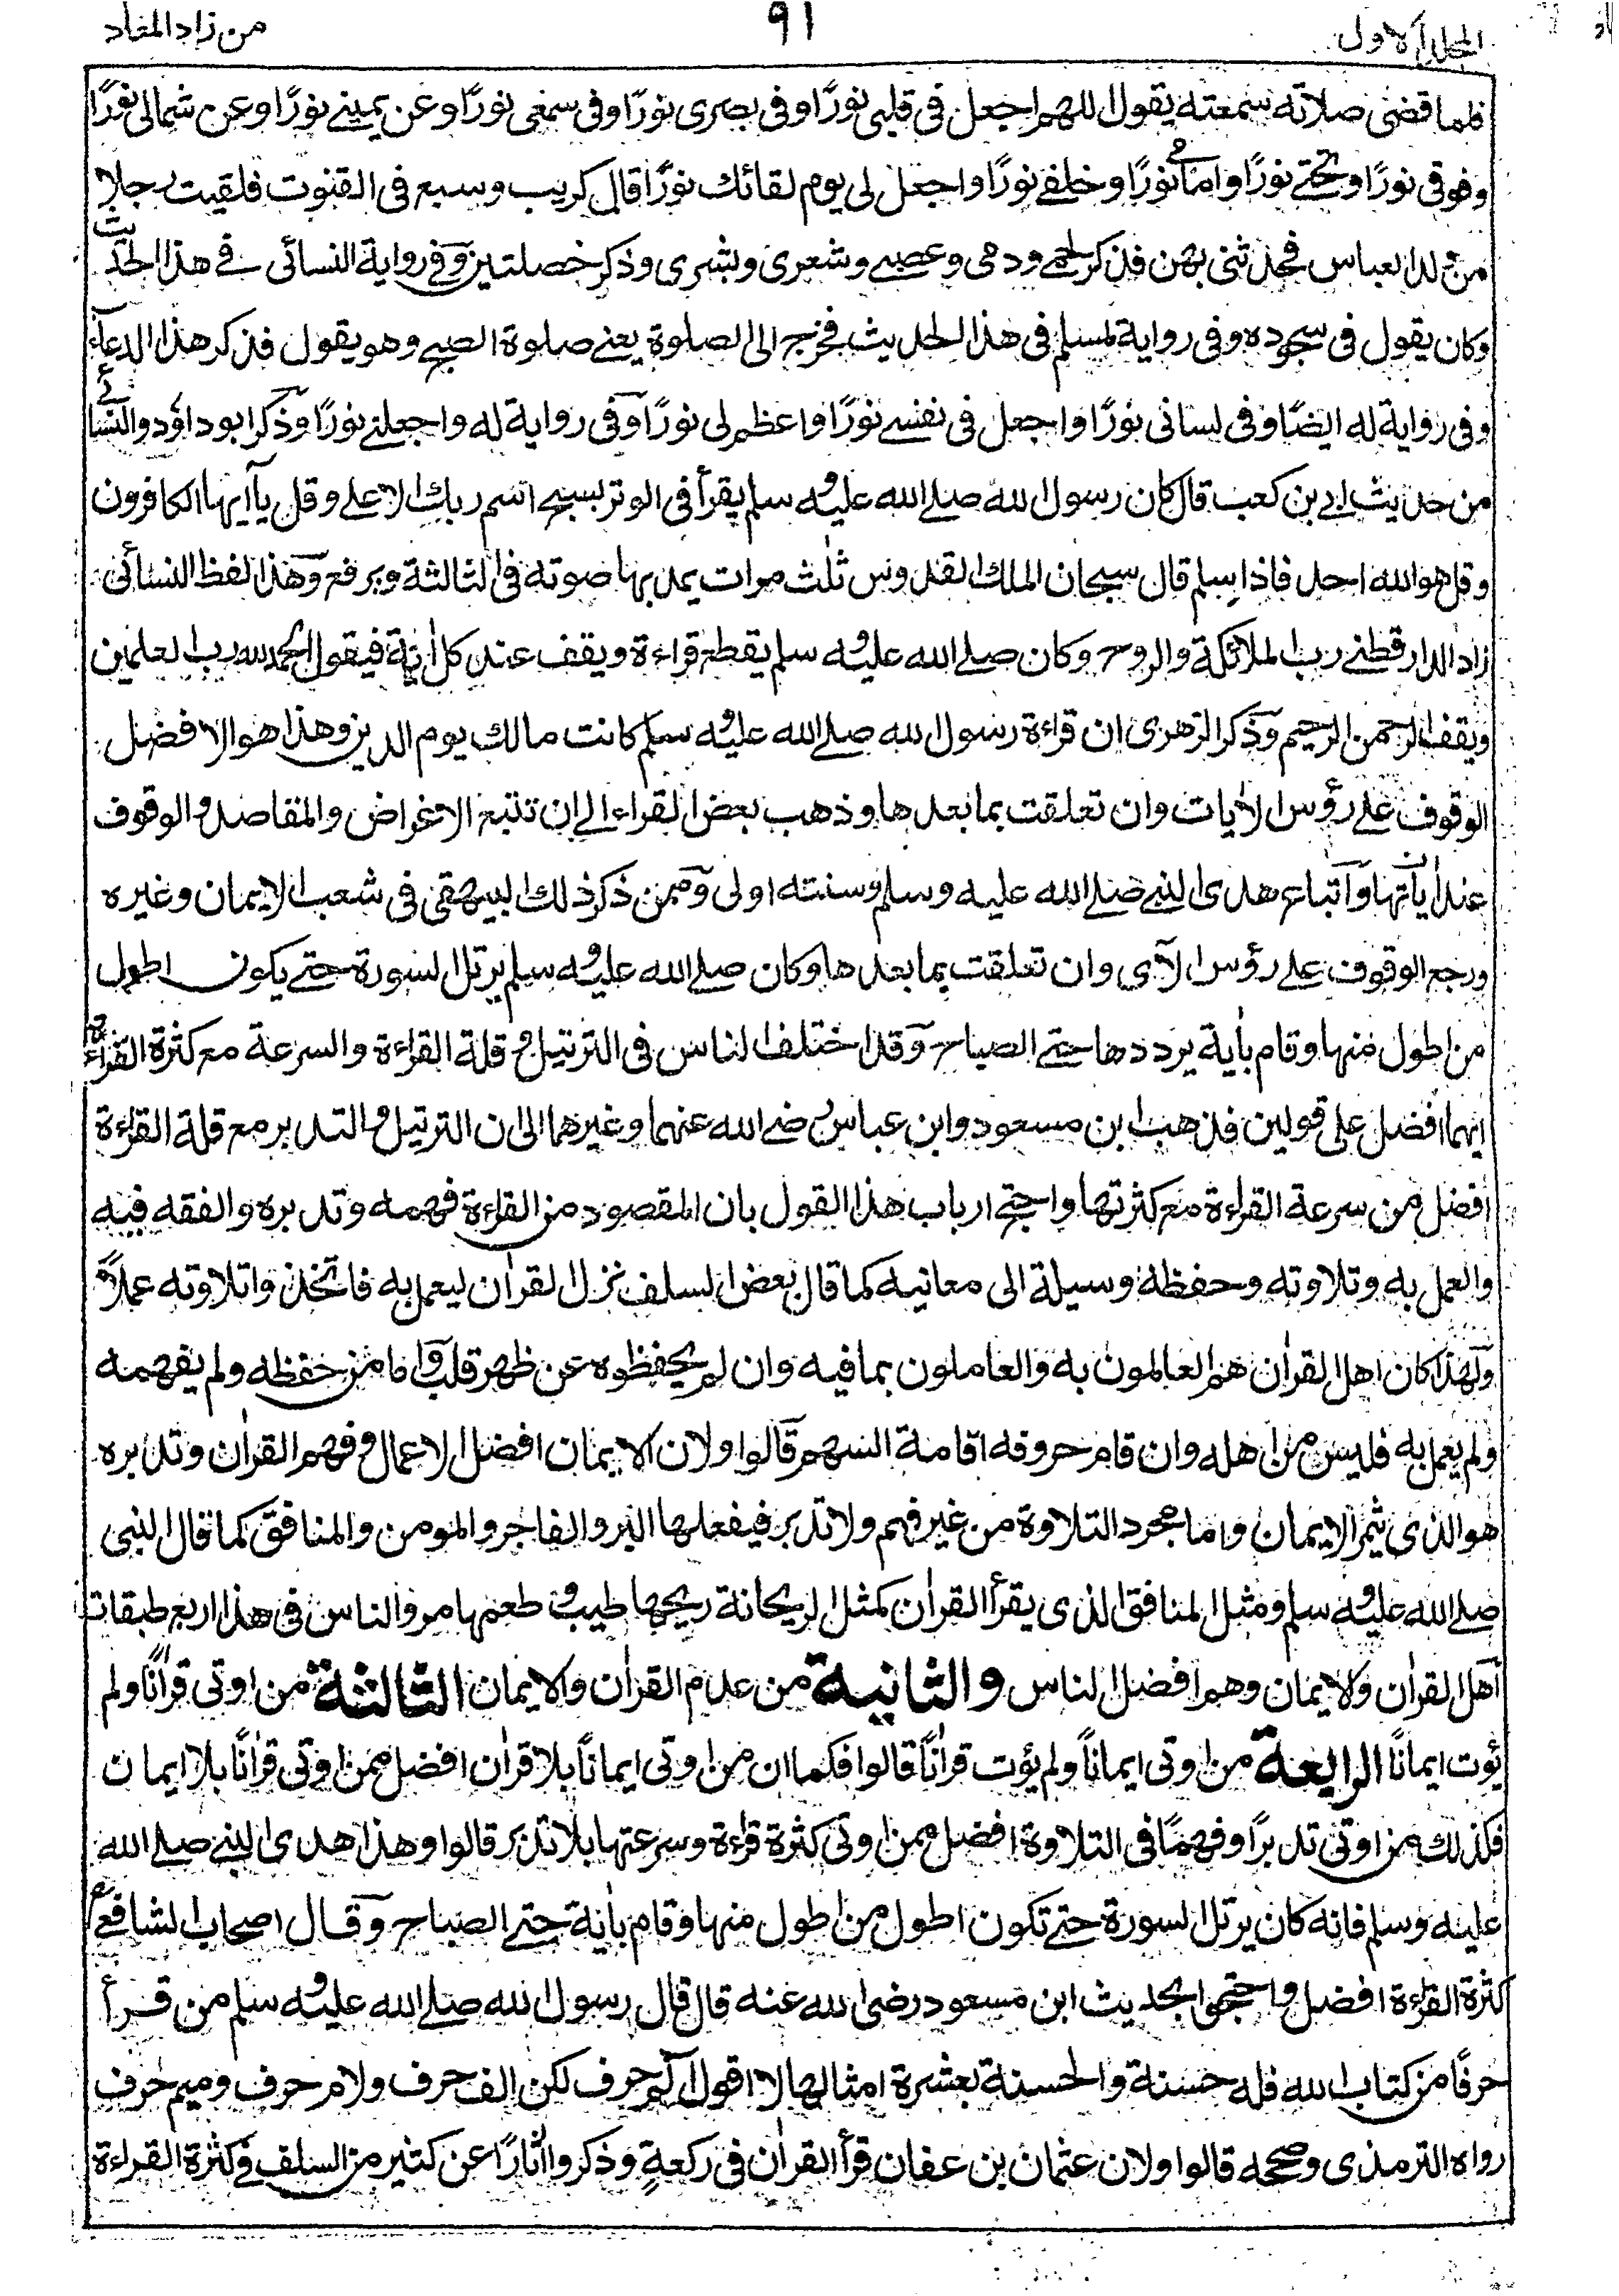 المجلد الاول
٩١
من زاد المعاد
فلما قضى صلاته سمعته يقول اللهم اجعل فى قلبى نورًا وفى بصرى نورًا وفى سمعى نورًا وعن يمينے نورًا وعن شمالى نورًا
وفوقى نورًا وتحتے نورًا وامامے نورًا وخلفے نورًا واجعل لى يوم لقائك نورًا قال كريب وسبع فى القنوت فلقيت رجلا
من ولد العباس فحدثنى بهن فذكر لحمے ودمى وعصبے وشعرى وبشرى وذكر خصلتين وفى رواية النسائى فے هذا الحديث
وكان يقول فى سجوده وفى رواية لمسلم فى هذا الحديث فخرج الى الصلوة يعنے صلوة الصبح وهو يقول فذكر هذا الدعاء
وفى رواية له ايضًا وفى لسانى نورًا واجعل فى نفسے نورًا واعظم لى نورًا وفى رواية له واجعلنے نورًا وذكر ابو داؤد والنسائے
من حديث ابى بن كعب قال كان رسول الله صلے الله عليه وسلم يقرأ فى الوتر بسبح اسم ربك الاعلے وقل يآ ايها الكافرون
وقل هو الله احد فاذا سلم قال سبحان الملك القدوس ثلٰث مرات يمد بها صوته فى الثالثة ويرفع وهذا لفظ النسائى
زاد الدارقطنے رب الملائكة والروح وكان صلے الله عليه وسلم يقطع قراءة ويقف عند كل اٰية فيقول الحمد لله رب العلمين
ويقف الرحمن الرحيم وذكر الزهرى ان قراءة رسول الله صلے الله عليه وسلم كانت مالك يوم الدين وهذا هو الافضل
الوقوف علے رؤس الاٰيات وان تعلقت بما بعدها وذهب بعض القراء الے ان تتبع الاغراض والمقاصد والوقوف
عند اٰياتها واتباع هدى النبے صلے الله عليه وسلم وسنته اولى وممن ذكر ذلك البيهقى فى شعب الايمان وغيره
ورجع الوقوف علے رؤس الآى وان تعلقت بما بعدها وكان صلے الله عليه وسلم يرتل السورة حتے يكون اطول
من اطول منها وقام باٰية يرددها حتے الصباح وقد اختلف الناس فى الترتيل و قلة القراءة والسرعة مع كثرة القراءة
ايهما افضل على قولين فذهب ابن مسعود وابن عباس رضے الله عنهما وغيرهما الى ان الترتيل والتدبر مع قلة القراءة
افضل من سرعة القراءة مع كثرتها واحتج ارباب هذا القول بان المقصود من القراءة فهمه وتدبره والفقه فيه
والعمل به وتلاوته وحفظه وسيلة الى معانيه كما قال بعض السلف نزل القراٰن ليعمل به فاتخذوا تلاوته عملًا
ولهذا كان اهل القراٰن هم العالمون به والعاملون بما فيه وان لم يحفظوه عن ظهر قلب واما من حفظه ولم يفهمه
ولم يعمل به فليس من اهله وان قام حروفه اقامة السهم قالوا ولان الايمان افضل الاعمال وفهم القراٰن وتدبره
هو الذى يثمر الايمان واما مجرد التلاوة من غير فهم ولا تدبر فيفعلها البر والفاجر والمومن والمنافق كما قال النبى
صلے الله عليه وسلم ومثل المنافق الذى يقرأ القراٰن كمثل الريحانة ريحها طيب و طعمها مر والناس فى هذا اربع طبقات
اهل القراٰن والايمان وهم افضل الناس والثانية من عدم القراٰن والايمان الثالثة من اوتى قراٰنًا ولم
يؤت ايمانًا الرابعة من اوتى ايمانًا ولم يؤت قراٰنًا قالوا فكما ان من اوتى ايمانًا بلا قراٰن افضل ممن اوتى قراٰنًا بلا ايمان
فكذلك من اوتى تدبرًا وفهمًا فى التلاوة افضل ممن اوتى كثرة قراءة وسرعتها بلا تدبر قالوا وهذا هدى النبے صلے الله
عليه وسلم فانه كان يرتل السورة حتے تكون اطول من اطول منها وقام باٰية حتے الصباح وقال اصحاب الشافعے
كثرة القراءة افضل واحتجوا بحديث ابن مسعود رضى الله عنه قال قال رسول الله صلے الله عليه وسلم من قرأ
حرفًا من كتاب الله فله حسنة والحسنة بعشرة امثالها لا اقول الٓم حرف لكن الف حرف ولام حرف وميم حرف
رواه الترمذى وصححه قالوا ولان عثمان بن عفان قرأ القراٰن فى ركعةٍ وذكروا اٰثارًا عن كثير من السلف فے كثرة القراءة